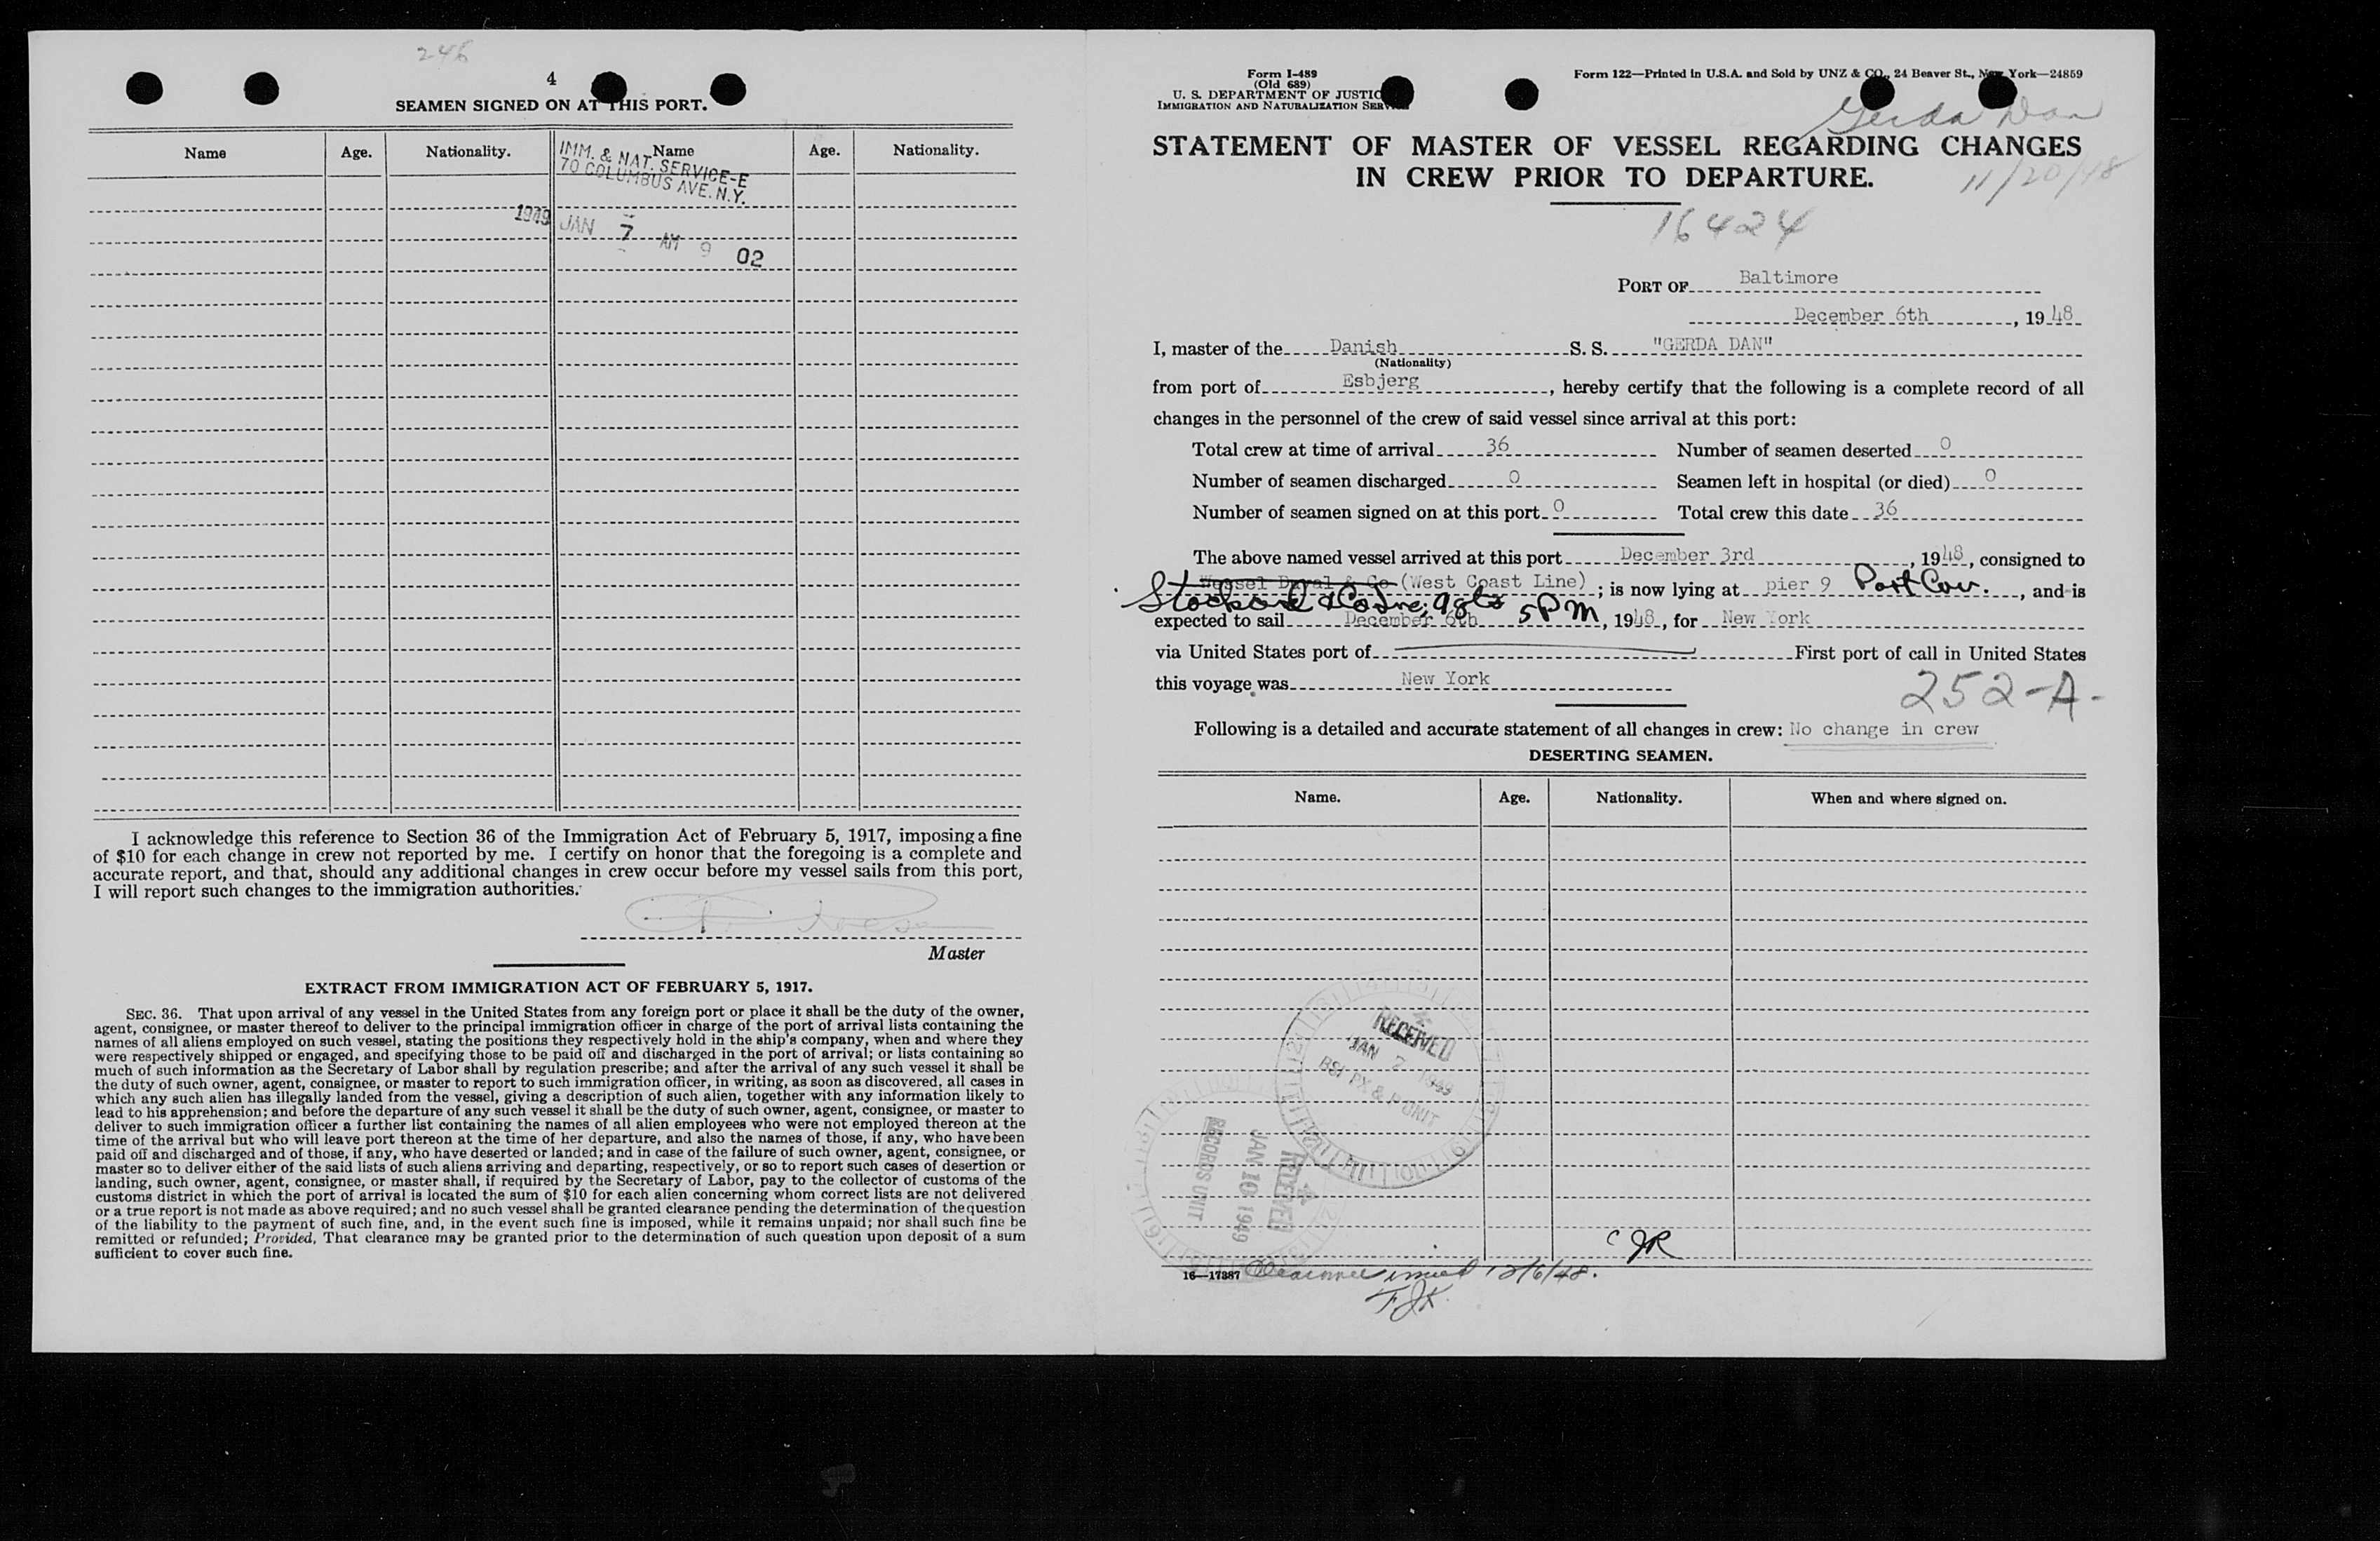 246
4
SEAMEN SIGNED ON AT THIS PORT.
Name Age. Nationality. Name Age. Nationality.
IMM. & NAT. SERVICE-E
70 COLUMBUS AVE. N.Y.
1949 JAN 7 AM 9 02
I acknowledge this reference to Section 36 of the Immigration Act of February 5, 1917, imposing a fine
of $10 for each change in crew not reported by me. I certify on honor that the foregoing is a complete and
accurate report, and that, should any additional changes in crew occur before my vessel sails from this port,
I will report such changes to the immigration authorities.
Master
EXTRACT FROM IMMIGRATION ACT OF FEBRUARY 5, 1917.
SEC. 36. That upon arrival of any vessel in the United States from any foreign port or place it shall be the duty of the owner,
agent, consignee, or master thereof to deliver to the principal immigration officer in charge of the port of arrival lists containing the
names of all aliens employed on such vessel, stating the positions they respectively hold in the ship's company, when and where they
were respectively shipped or engaged, and specifying those to be paid off and discharged in the port of arrival; or lists containing so
much of such information as the Secretary of Labor shall by regulation prescribe; and after the arrival of any such vessel it shall be
the duty of such owner, agent, consignee, or master to report to such immigration officer, in writing, as soon as discovered, all cases in
which any such alien has illegally landed from the vessel, giving a description of such alien, together with any information likely to
lead to his apprehension; and before the departure of any such vessel it shall be the duty of such owner, agent, consignee, or master to
deliver to such immigration officer a further list containing the names of all alien employees who were not employed thereon at the
time of the arrival but who will leave port thereon at the time of her departure, and also the names of those, if any, who have been
paid off and discharged and of those, if any, who have deserted or landed; and in case of the failure of such owner, agent, consignee, or
master so to deliver either of the said lists of such aliens arriving and departing, respectively, or so to report such cases of desertion or
landing, such owner, agent, consignee, or master shall, if required by the Secretary of Labor, pay to the collector of customs of the
customs district in which the port of arrival is located the sum of $10 for each alien concerning whom correct lists are not delivered
or a true report is not made as above required; and no such vessel shall be granted clearance pending the determination of the question
of the liability to the payment of such fine, and, in the event such fine is imposed, while it remains unpaid; nor shall such fine be
remitted or refunded; Provided, That clearance may be granted prior to the determination of such question upon deposit of a sum
sufficient to cover such fine.
Form I-489
(Old 689)
U. S. DEPARTMENT OF JUSTIC
IMMIGRATION AND NATURALIZATION SERV
Form 122—Printed in U.S.A. and Sold by UNZ & CO., 24 Beaver St., New York—24859
Gerda Dan
STATEMENT OF MASTER OF VESSEL REGARDING CHANGES
IN CREW PRIOR TO DEPARTURE.
11/20/48
16424
PORT OF Baltimore
December 6th, 1948
I, master of the Danish S. S. "GERDA DAN"
(Nationality)
from port of Esbjerg, hereby certify that the following is a complete record of all
changes in the personnel of the crew of said vessel since arrival at this port:
Total crew at time of arrival 36 Number of seamen deserted 0
Number of seamen discharged 0 Seamen left in hospital (or died) 0
Number of seamen signed on at this port 0 Total crew this date 36
The above named vessel arrived at this port December 3rd, 1948, consigned to
Wessel Duval & Co (West Coast Line); is now lying at pier 9 Port Cov., and is
Stockard & Co Inc; agts
expected to sail December 6th 5 PM, 1948, for New York
via United States port of First port of call in United States
this voyage was New York
252-A-
Following is a detailed and accurate statement of all changes in crew: No change in crew
DESERTING SEAMEN.
Name. Age. Nationality. When and where signed on.
RECEIVED
JAN 7 1949
BSI PX & P UNIT
RECEIVED
JAN 10 1949
RECORDS UNIT
JR
16—17387 Clearance issued 12/6/48.
FJK.